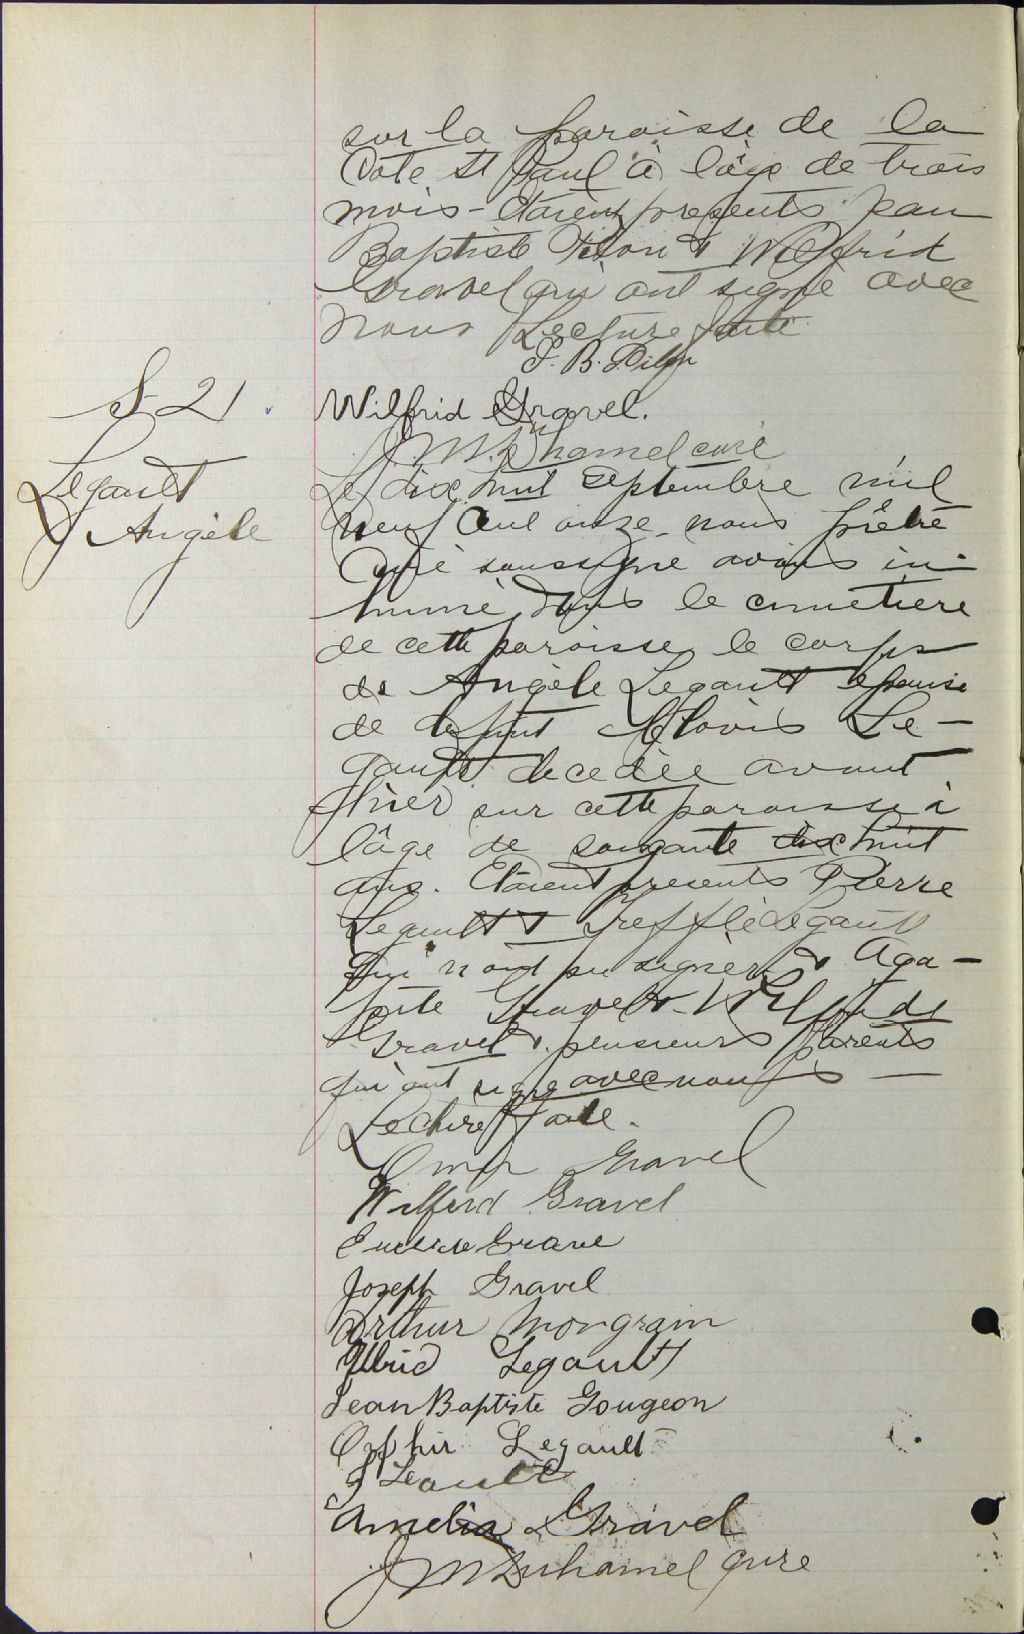 sur la paroisse de la
Cote St Paul à l'âge de trois
mois - Etaient presents Jean
Baptiste Pilon & Wilfrid
Gravel qui ont signé avec
nous Lecture faite
J. B. Pilon
S-21
Wilfrid Gravel.
J M Duhamel curé
Legault
Angèle
Le dix huit septembre mil
neuf cent onze nous prêtre
Curé soussigné avons in-
humé dans le cimetiere
de cette paroisse le corps
de Angèle Legault epouse
de defunt Clovis Le-
gault decedée avant
hier sur cette paroisse à
l'âge de soixante dix huit
ans. Etaient presents Pierre
Legault & Trefflé Legault
qui n'ont pu signer & Aga-
pite Gravel & Wilfrid
Gravel & plusieurs parents
qui ont signé avec nous —
Lecture faite.
Omer Gravel
Wilfrid Gravel
Gravel
Joseph Gravel
Arthur Mongrain
Ulric Legault
Jean Baptiste Gougeon
Ophir Legault
Amelia Gravel
J M Duhamel cure